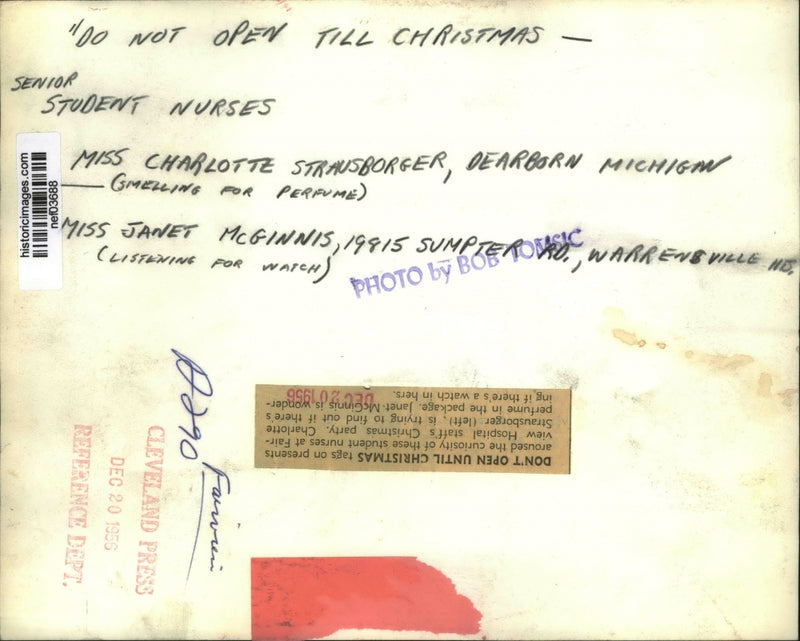 "DO NOT OPEN TILL CHRISTMAS —
SENIOR
STUDENT NURSES
MISS CHARLOTTE STRAUSBORGER, DEARBORN MICHIGAN
(SMELLING FOR PERFUME)
MISS JANET McGINNIS, 19915 SUMPTER RD., WARRENSVILLE HTS.
(LISTENING FOR WATCH)
PHOTO by BOB TOMSIC
historicimages.com
nef03688
DON'T OPEN UNTIL CHRISTMAS tags on presents
aroused the curiosity of these student nurses at Fair-
view Hospital staff's Christmas party. Charlotte
Strausborger (left), is trying to find out if there's
perfume in the package. Janet McGinnis is wonder-
ing if there's a watch in hers.
DEC 20 1956
Fairview
CLEVELAND PRESS
DEC 20 1956
REFERENCE DEPT.